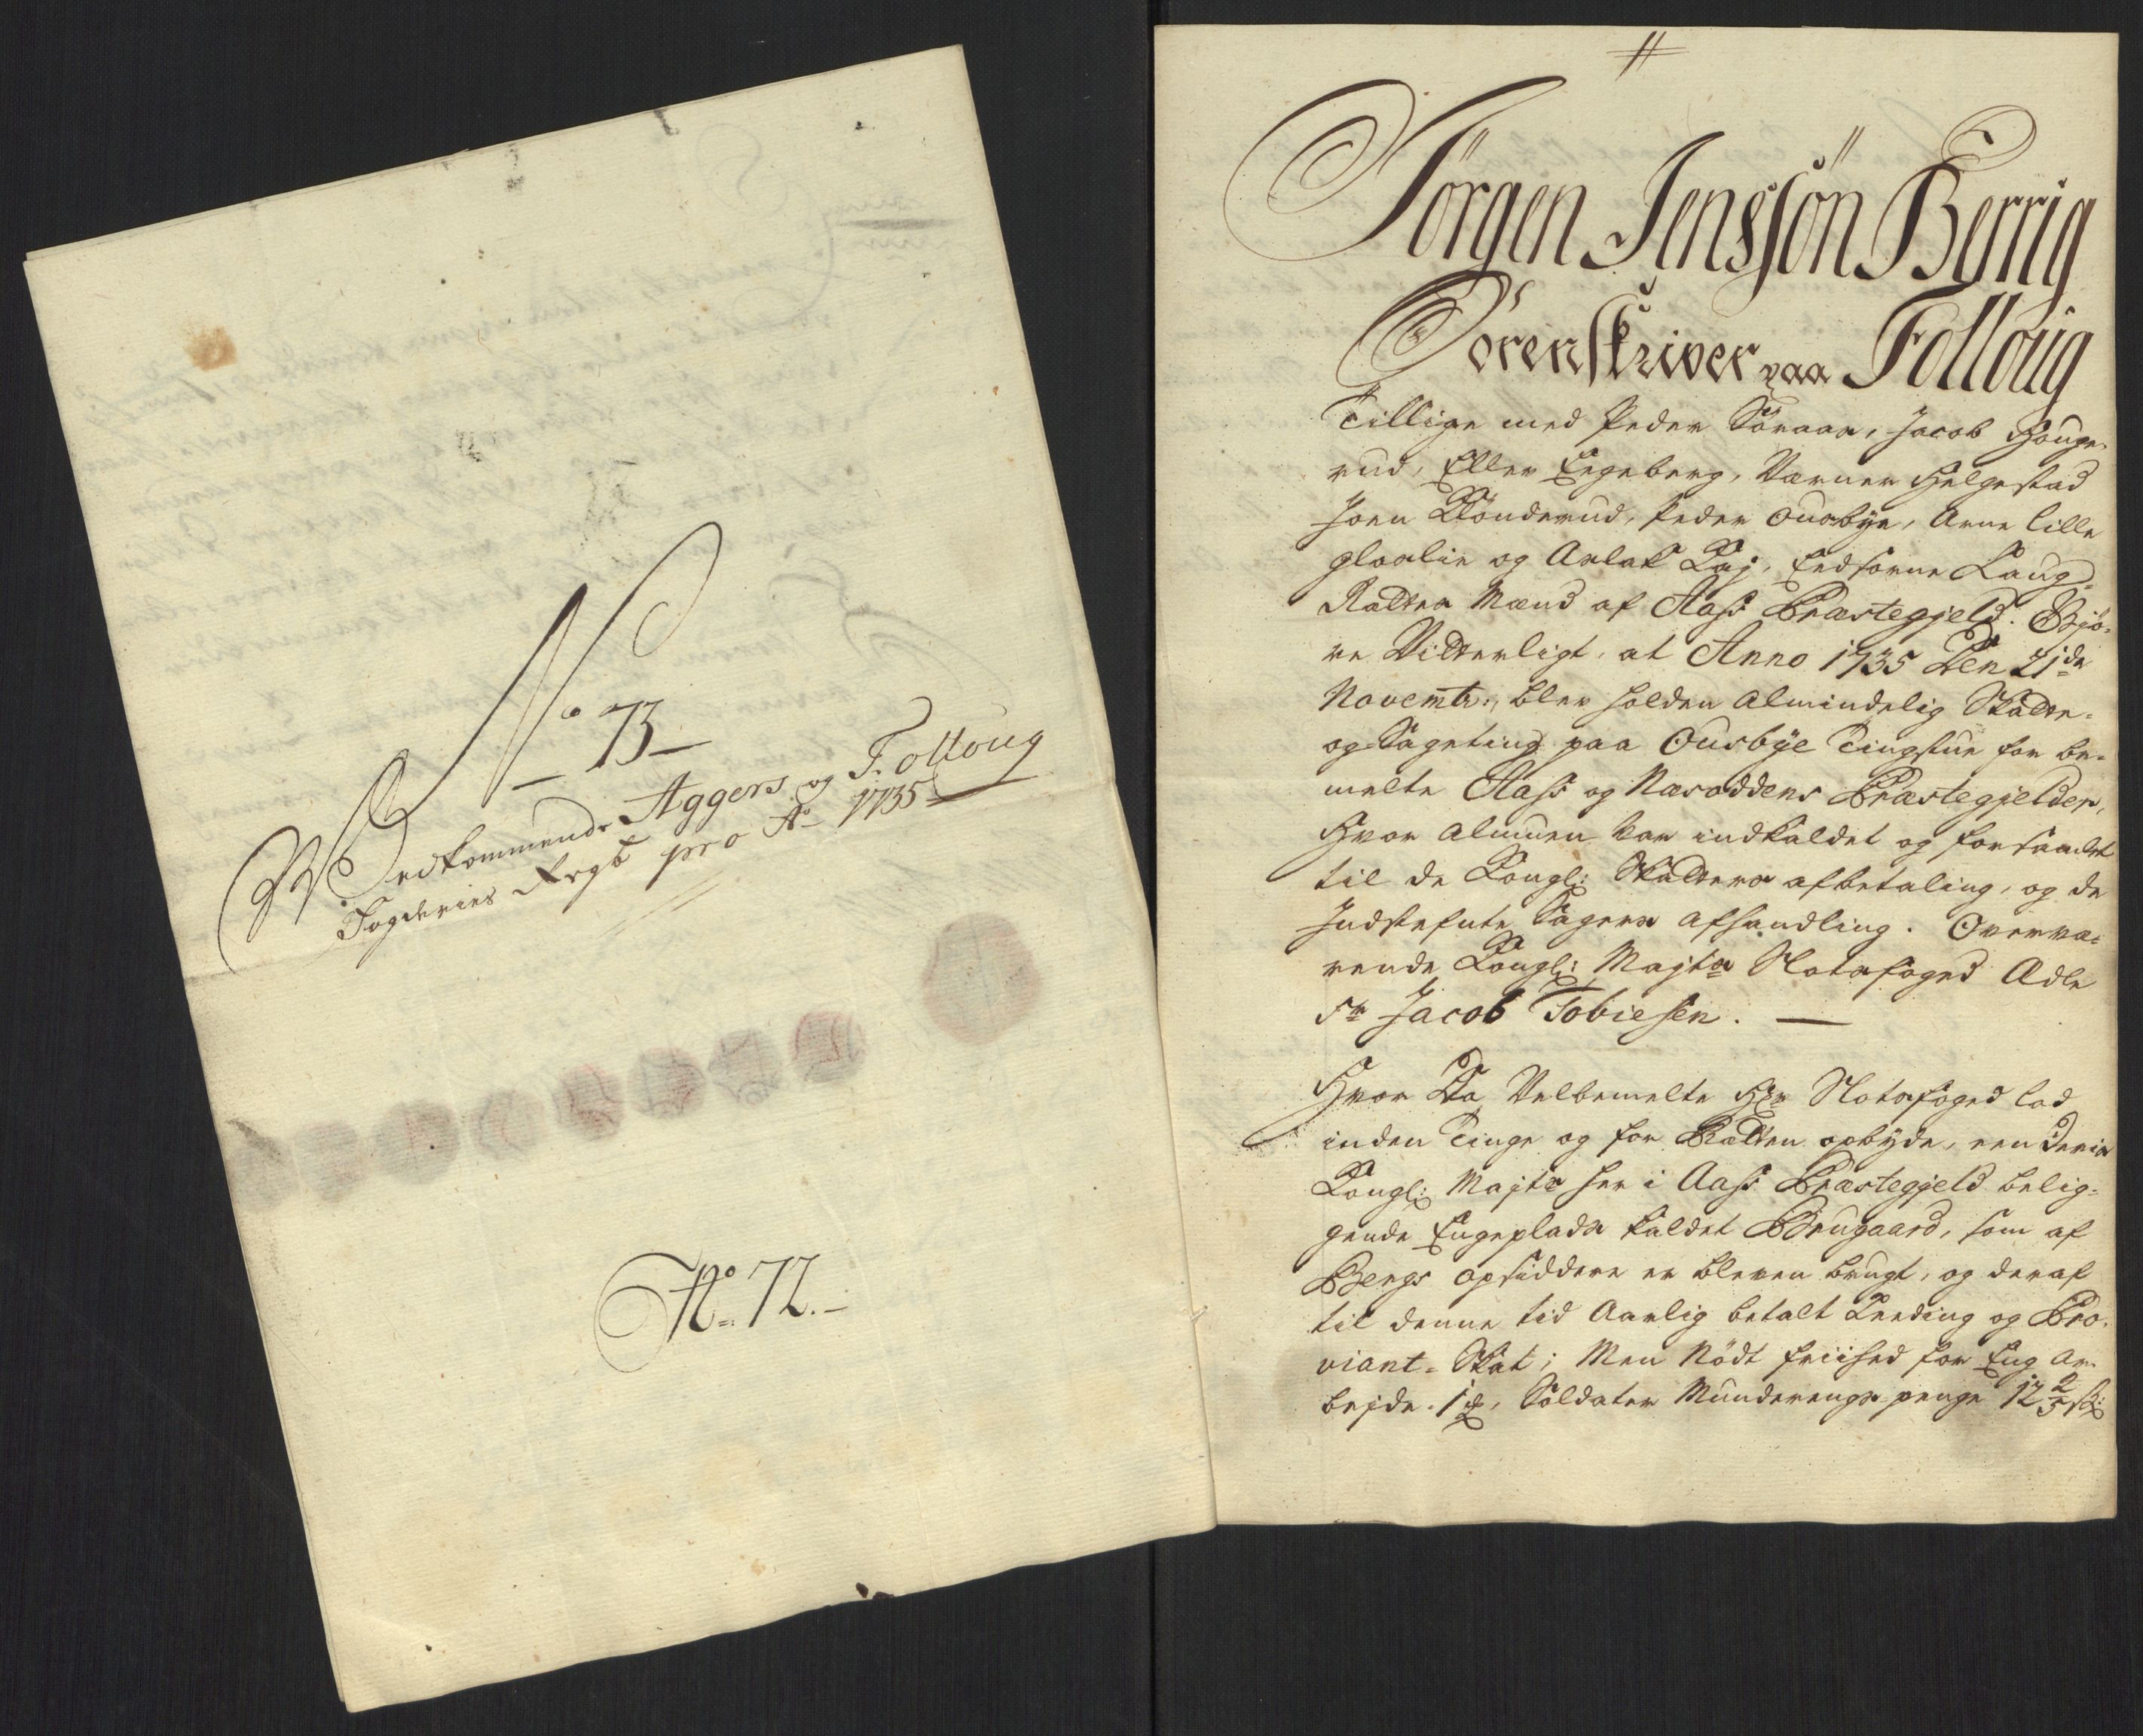 No 73
Vedkommende Aggers og Folloug
Fogderies Regsk pro Ao 1735
No. 72.
Jörgen Jenssön Berrig
Sorenskriver paa Folloug
Tillige med Peder Söraas, Jacob Houge-
rud, Eller Eegeberg, Narner Helgestad
Joen Kiönderud, Peder Ousbÿe, Arne Lille
og Aslak Eedsorne Laug-
Rættes Mænd af Aass Præstegjeld. Gjö-
re Vitterligt, at Anno 1735 Den 21de
Novembr:, blev holden Almindelig Skatte-
og Sageting paa Ousbÿe Tingstue for be-
melte Aass og Næsoddens Præstegjelder,
Hvor Almuen var indkaldet og forsamlet
til de Kongl: Skatters afbetaling, og de
Indstefnte Sagers Afhandling. Overvæ-
rende Kongl: Majts Slotsfoged Ædle
Sr Jacob Tobiesen.
Hvor Da Velbemelte Hr Slotsfoged lod
inden Tinge og for Rætten opbÿde, een Deris
Kongl: Majts her i Aass Præstegjeld belig-
gende Engeplads kaldet Brugaard, som af
Bergs opsiddere er bleven brugt, og deraf
til denne tid Aarlig betalt Leeding og Pro-
viant-Skat; Men Nödt friihed for Eng Ar-
bejde. 1 , Soldater Munderengs penge 12 2/5 sk: